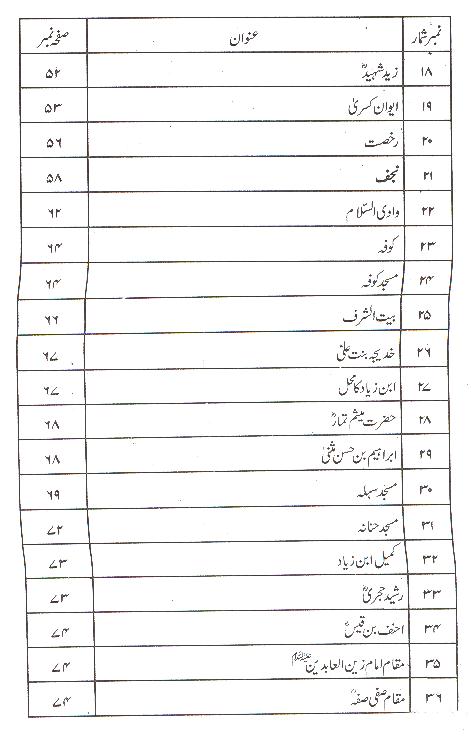 نمبر شمار عنوان صفحہ نمبر
۱۸ زید شہیدؒ ۵۲
۱۹ ایوان کسریٰ ۵۳
۲۰ رخصت ۵۶
۲۱ نجف ۵۸
۲۲ وادی السّلام ۶۲
۲۳ کوفہ ۶۴
۲۴ مسجد کوفہ ۶۴
۲۵ بیت الشرف ۶۶
۲۶ خدیجہ بنت علیؑ ۶۷
۲۷ ابن زیاد کا محل ۶۷
۲۸ حضرت میثم تمارؒ ۶۸
۲۹ ابراہیم بن حسن مثنیٰ ۶۸
۳۰ مسجد سہلہ ۶۹
۳۱ مسجد حنانہ ۷۲
۳۲ کمیل ابن زیاد ۷۳
۳۳ رشید حجریؒ ۷۳
۳۴ احنف بن قیسؒ ۷۴
۳۵ مقام امام زین العابدین علیہ السلام ۷۴
۳۶ مقام صفی صفہؒ ۷۴